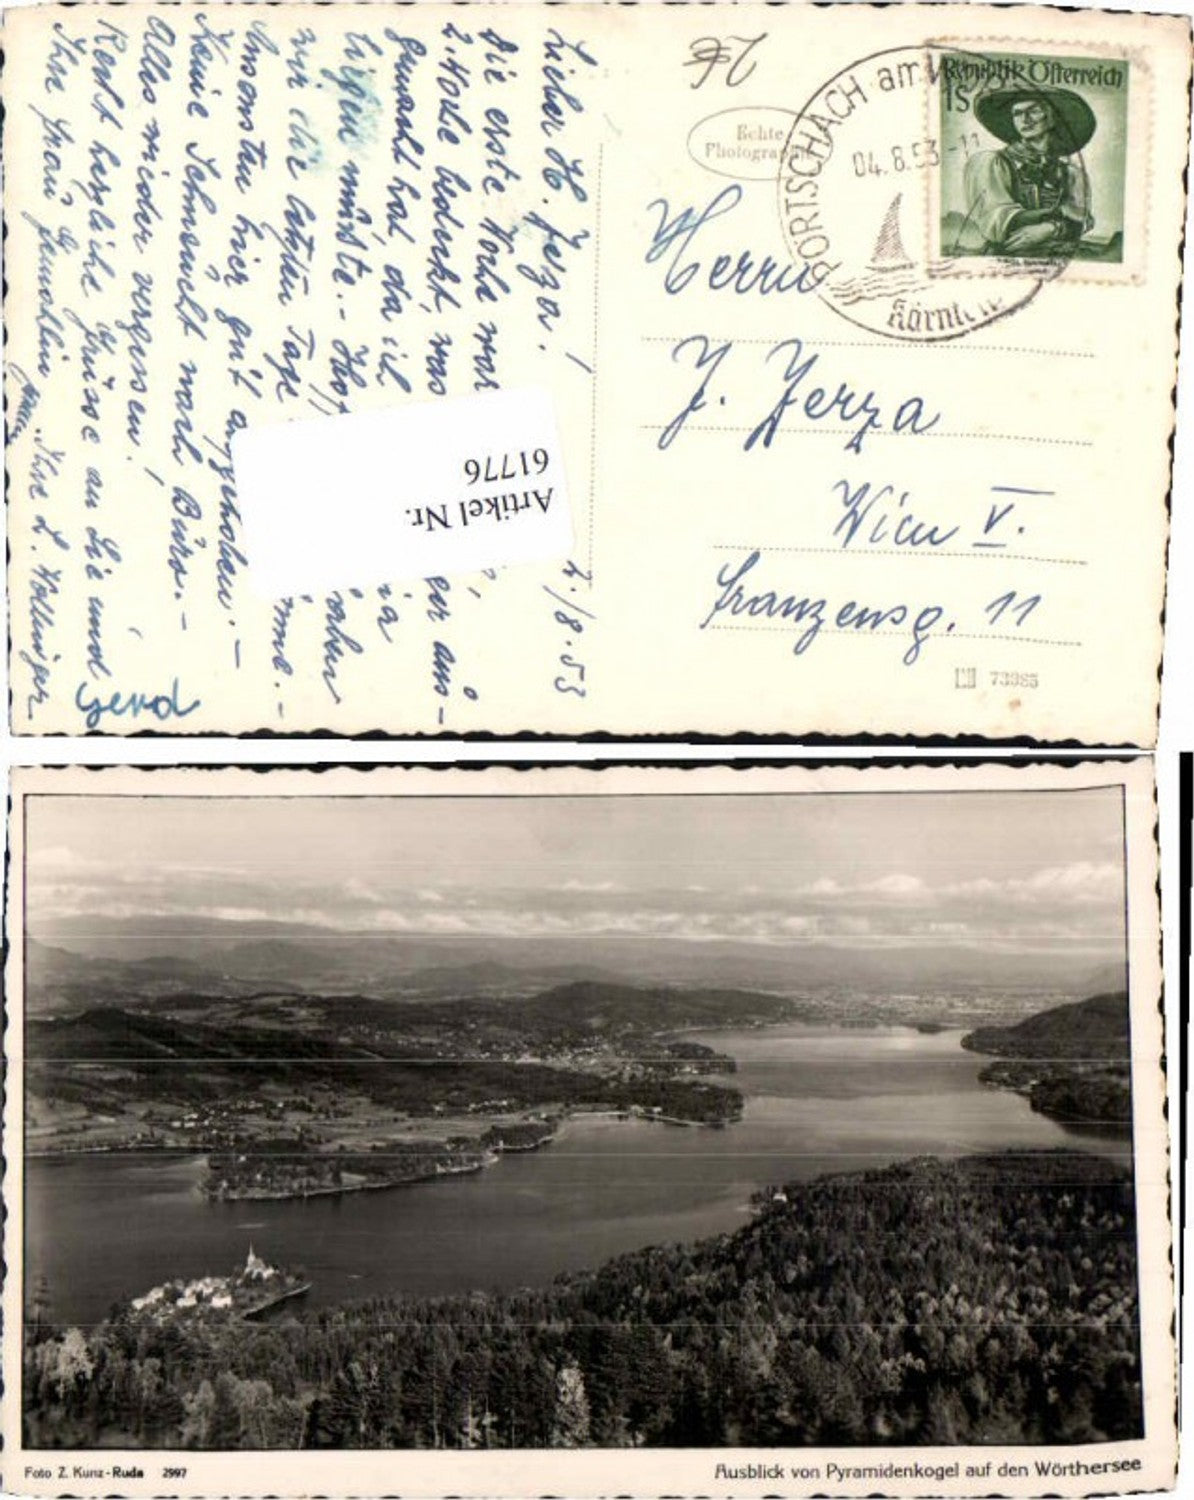 Lieber H. Jerza!
2./8.53
Die erste Woche war
2. Woche bedeckt, was
er aus-
gemacht hat, da ich
ja
liegen müsste. - Hof
aber
mir die letzten Tage
Ansonsten hier gut
Keine Sehnsucht nach Büro. -
Alles wieder vergessen!
Recht herzliche Grüsse an Sie und
Ihre Frau Gemahlin
Ihre L. Kollinger
Gerd
Artikel Nr.
61776
Echte
Photographie
PÖRTSCHACH am W
04.8.53-11
Kärnten
Republik Österreich
1S
Herrn
J. Jerza
Wien V.
Franzensg. 11
73385
Foto Z. Kunz-Ruda 2997
Ausblick von Pyramidenkogel auf den Wörthersee